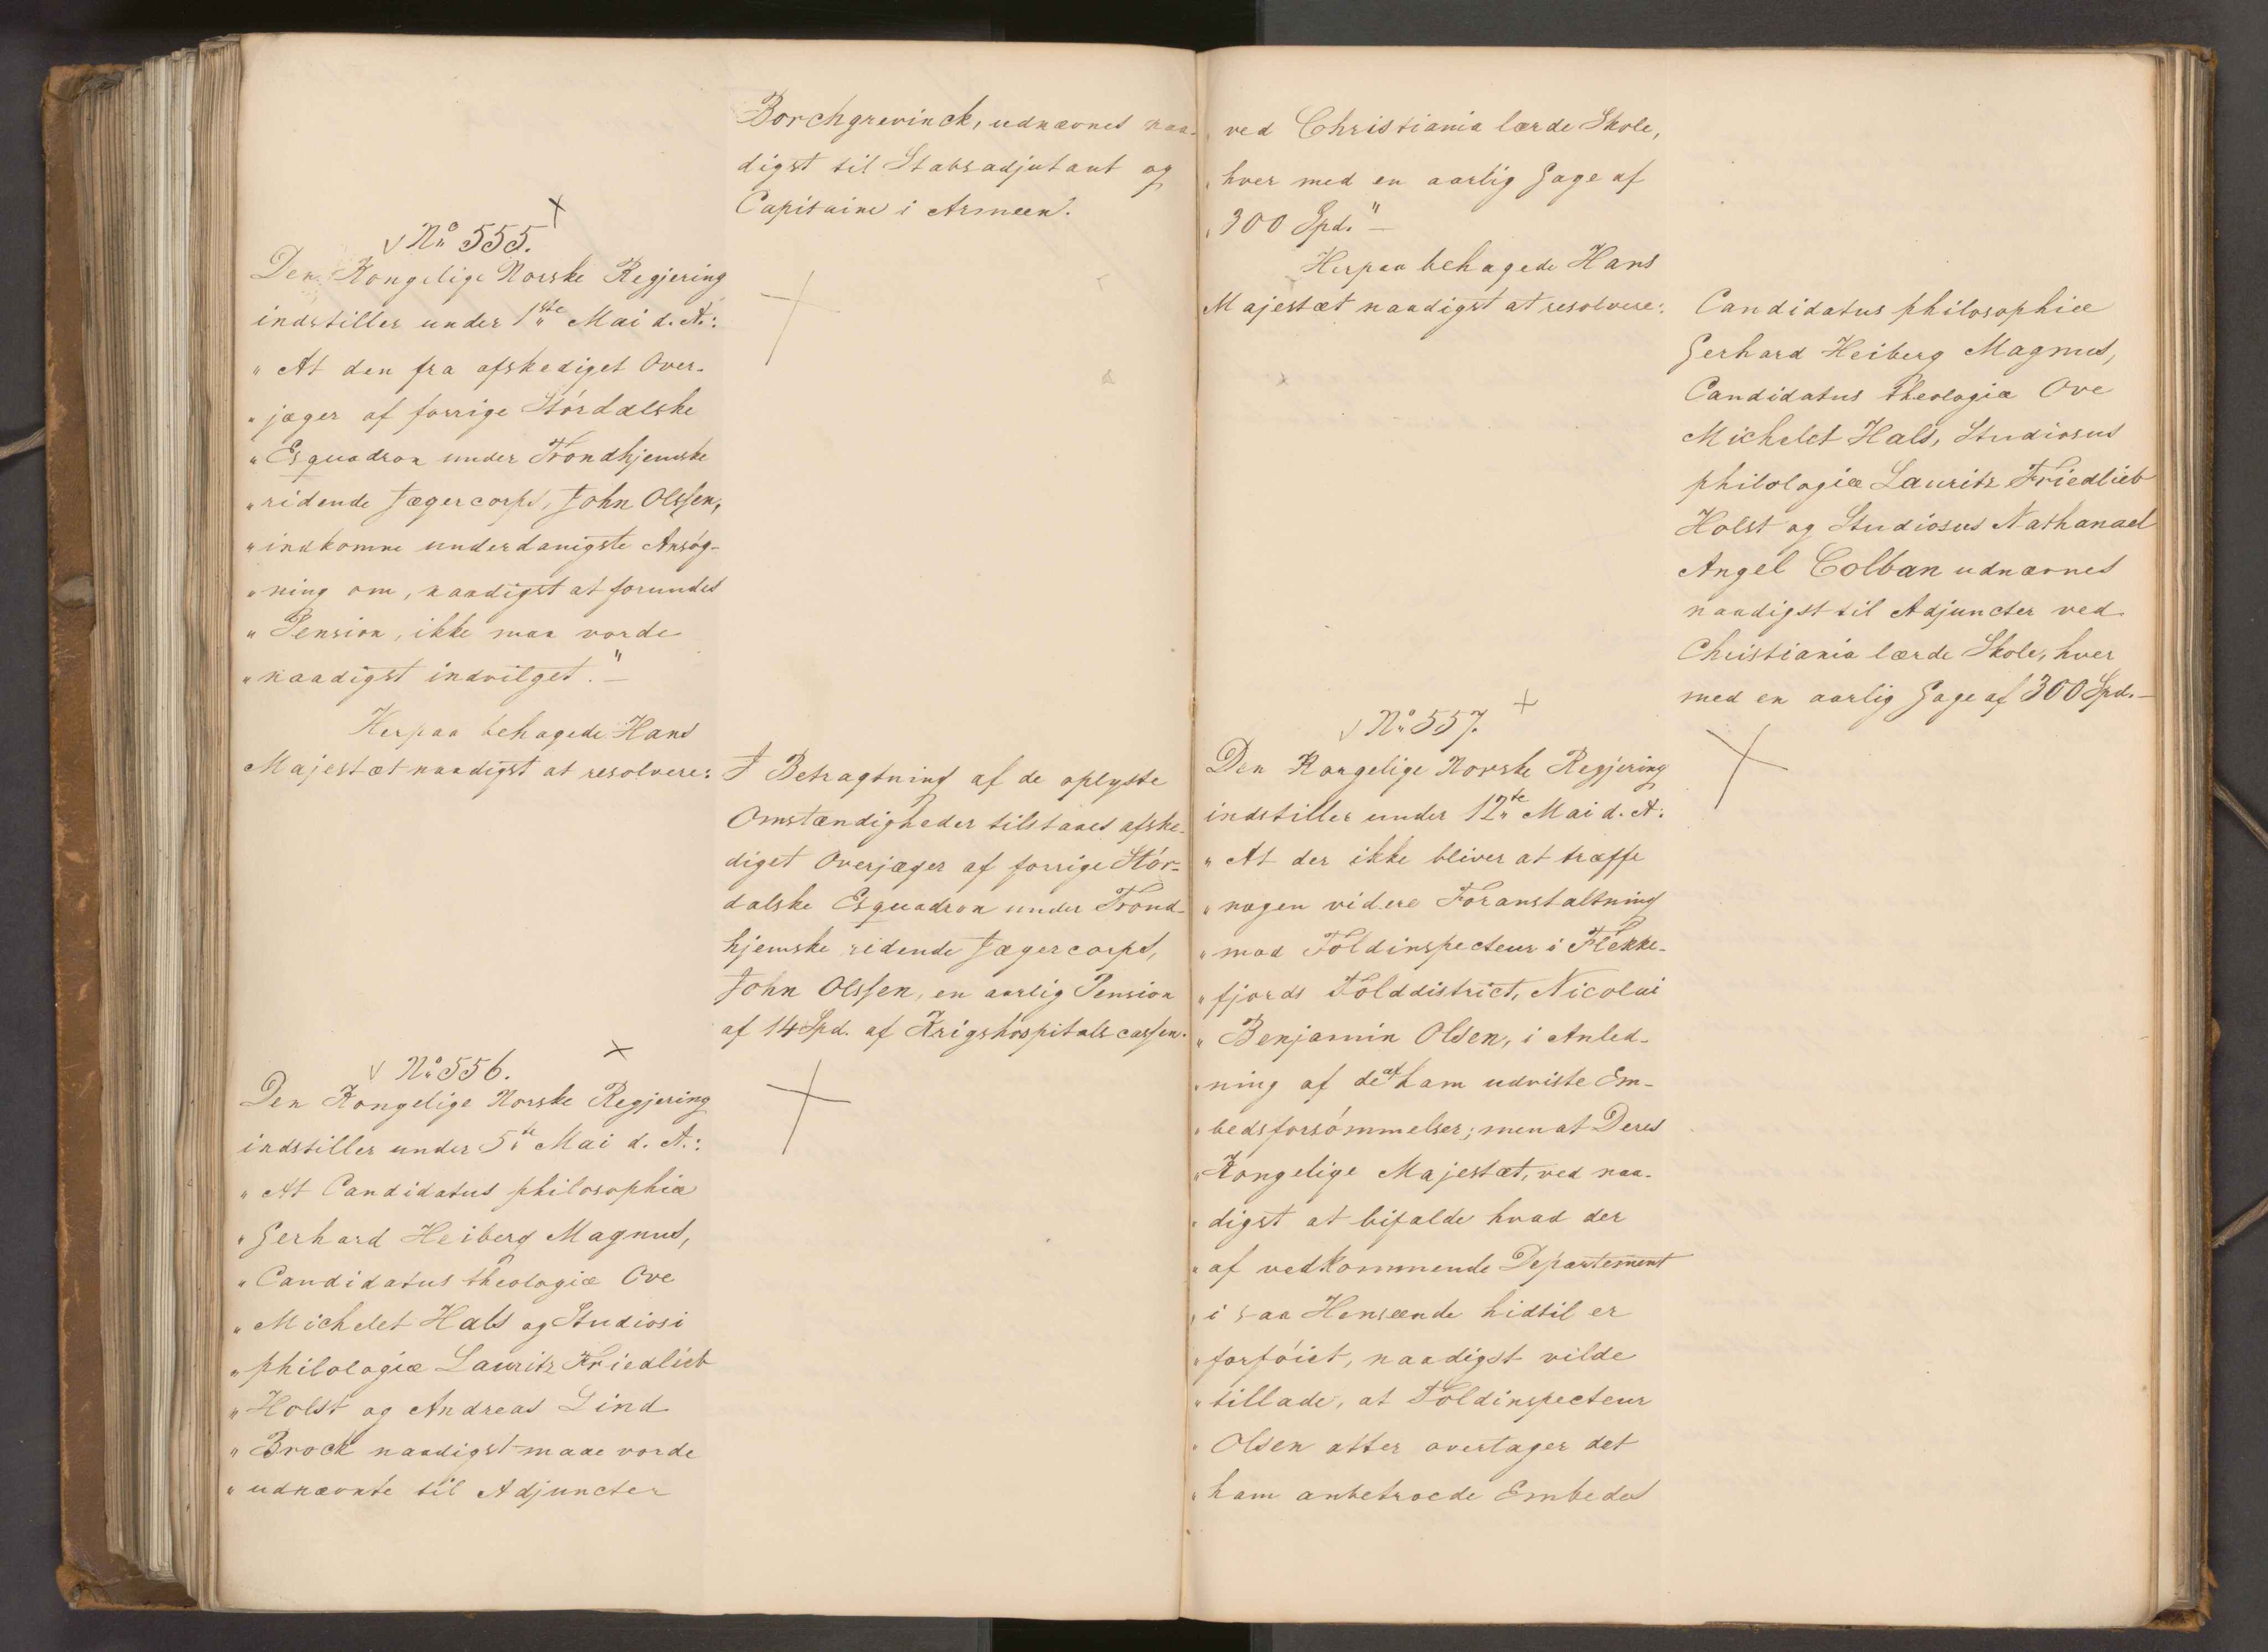 Borchgrevinck, udnævnes naa-
digst til Stabsadjutant og
Capitaine i Armeen.
No 555.
Den Kongelige Norske Regjering
indstiller under 1ste Mai d. A.:
"At den fra afskediget Over-
"jæger af forrige Stórdalske
"Esquadron under Trondhjemske
"ridende Jægercorps, John Olssen,
"indkomne underdanigste Ansóg-
"ning om, naadigst at forundes
"Pension, ikke maa vorde
"naadigst indvilget." —
Herpaa behagede Hans
Majestæt naadigst at resolvere:
I Betragtning af de oplyste
Omstændigheder tilstaaes afske-
diget Overjæger af forrige Stór-
dalske Esquadron under Trond-
hjemske ridende Jægercorps,
John Olssen, en aarlig Pension
af 14 Spd. af Krigshospitalscassen.
No 556.
Den Kongelige Norske Regjering
indstiller under 5te Mai d. A.:
"At Candidatus philosophiæ
"Gerhard Heiberg Magnus,
"Candidatus theologiæ Ove
"Michelet Hals og Studiosi
"philologiæ Lauritz Friedlieb
"Holst og Andreas Lind
"Brock naadigst maae vorde
"udnævnte til Adjuncter
"ved Christiania lærde Skole,
"hver med en aarlig Gage af
"300 Spd." —
Herpaa behagede Hans
Majestæt naadigst at resolvere:
Candidatus philosophiæ
Gerhard Heiberg Magnus,
Candidatus theologiæ Ove
Michelet Hals, Studiosus
philologiæ Lauritz Friedlieb
Holst og Studiosus Nathanael
Angel Colban udnævnes
naadigst til Adjuncter ved
Christiania lærde Skole, hver
med en aarlig Gage af 300 Spd. —
No 557.
Den Kongelige Norske Regjering
indstiller under 12te Mai d. A:
"At der ikke bliver at træffe
"nogen videre Foranstaltning
"mod Toldinspecteur i Flekke-
"fjords Tolddistrict, Nicolai
"Benjamin Olsen, i Anled-
"ning af de af ham udviste Em-
"bedsforsómmelser; men at Deres
"Kongelige Majestæt, ved naa-
"digst at bifalde hvad der
"af vedkommende Departement
"i saa Henseende hidtil er
"forfóiet, naadigst vilde
"tillade, at Toldinspecteur
"Olsen atter overtager det
"ham anbetroede Embedes